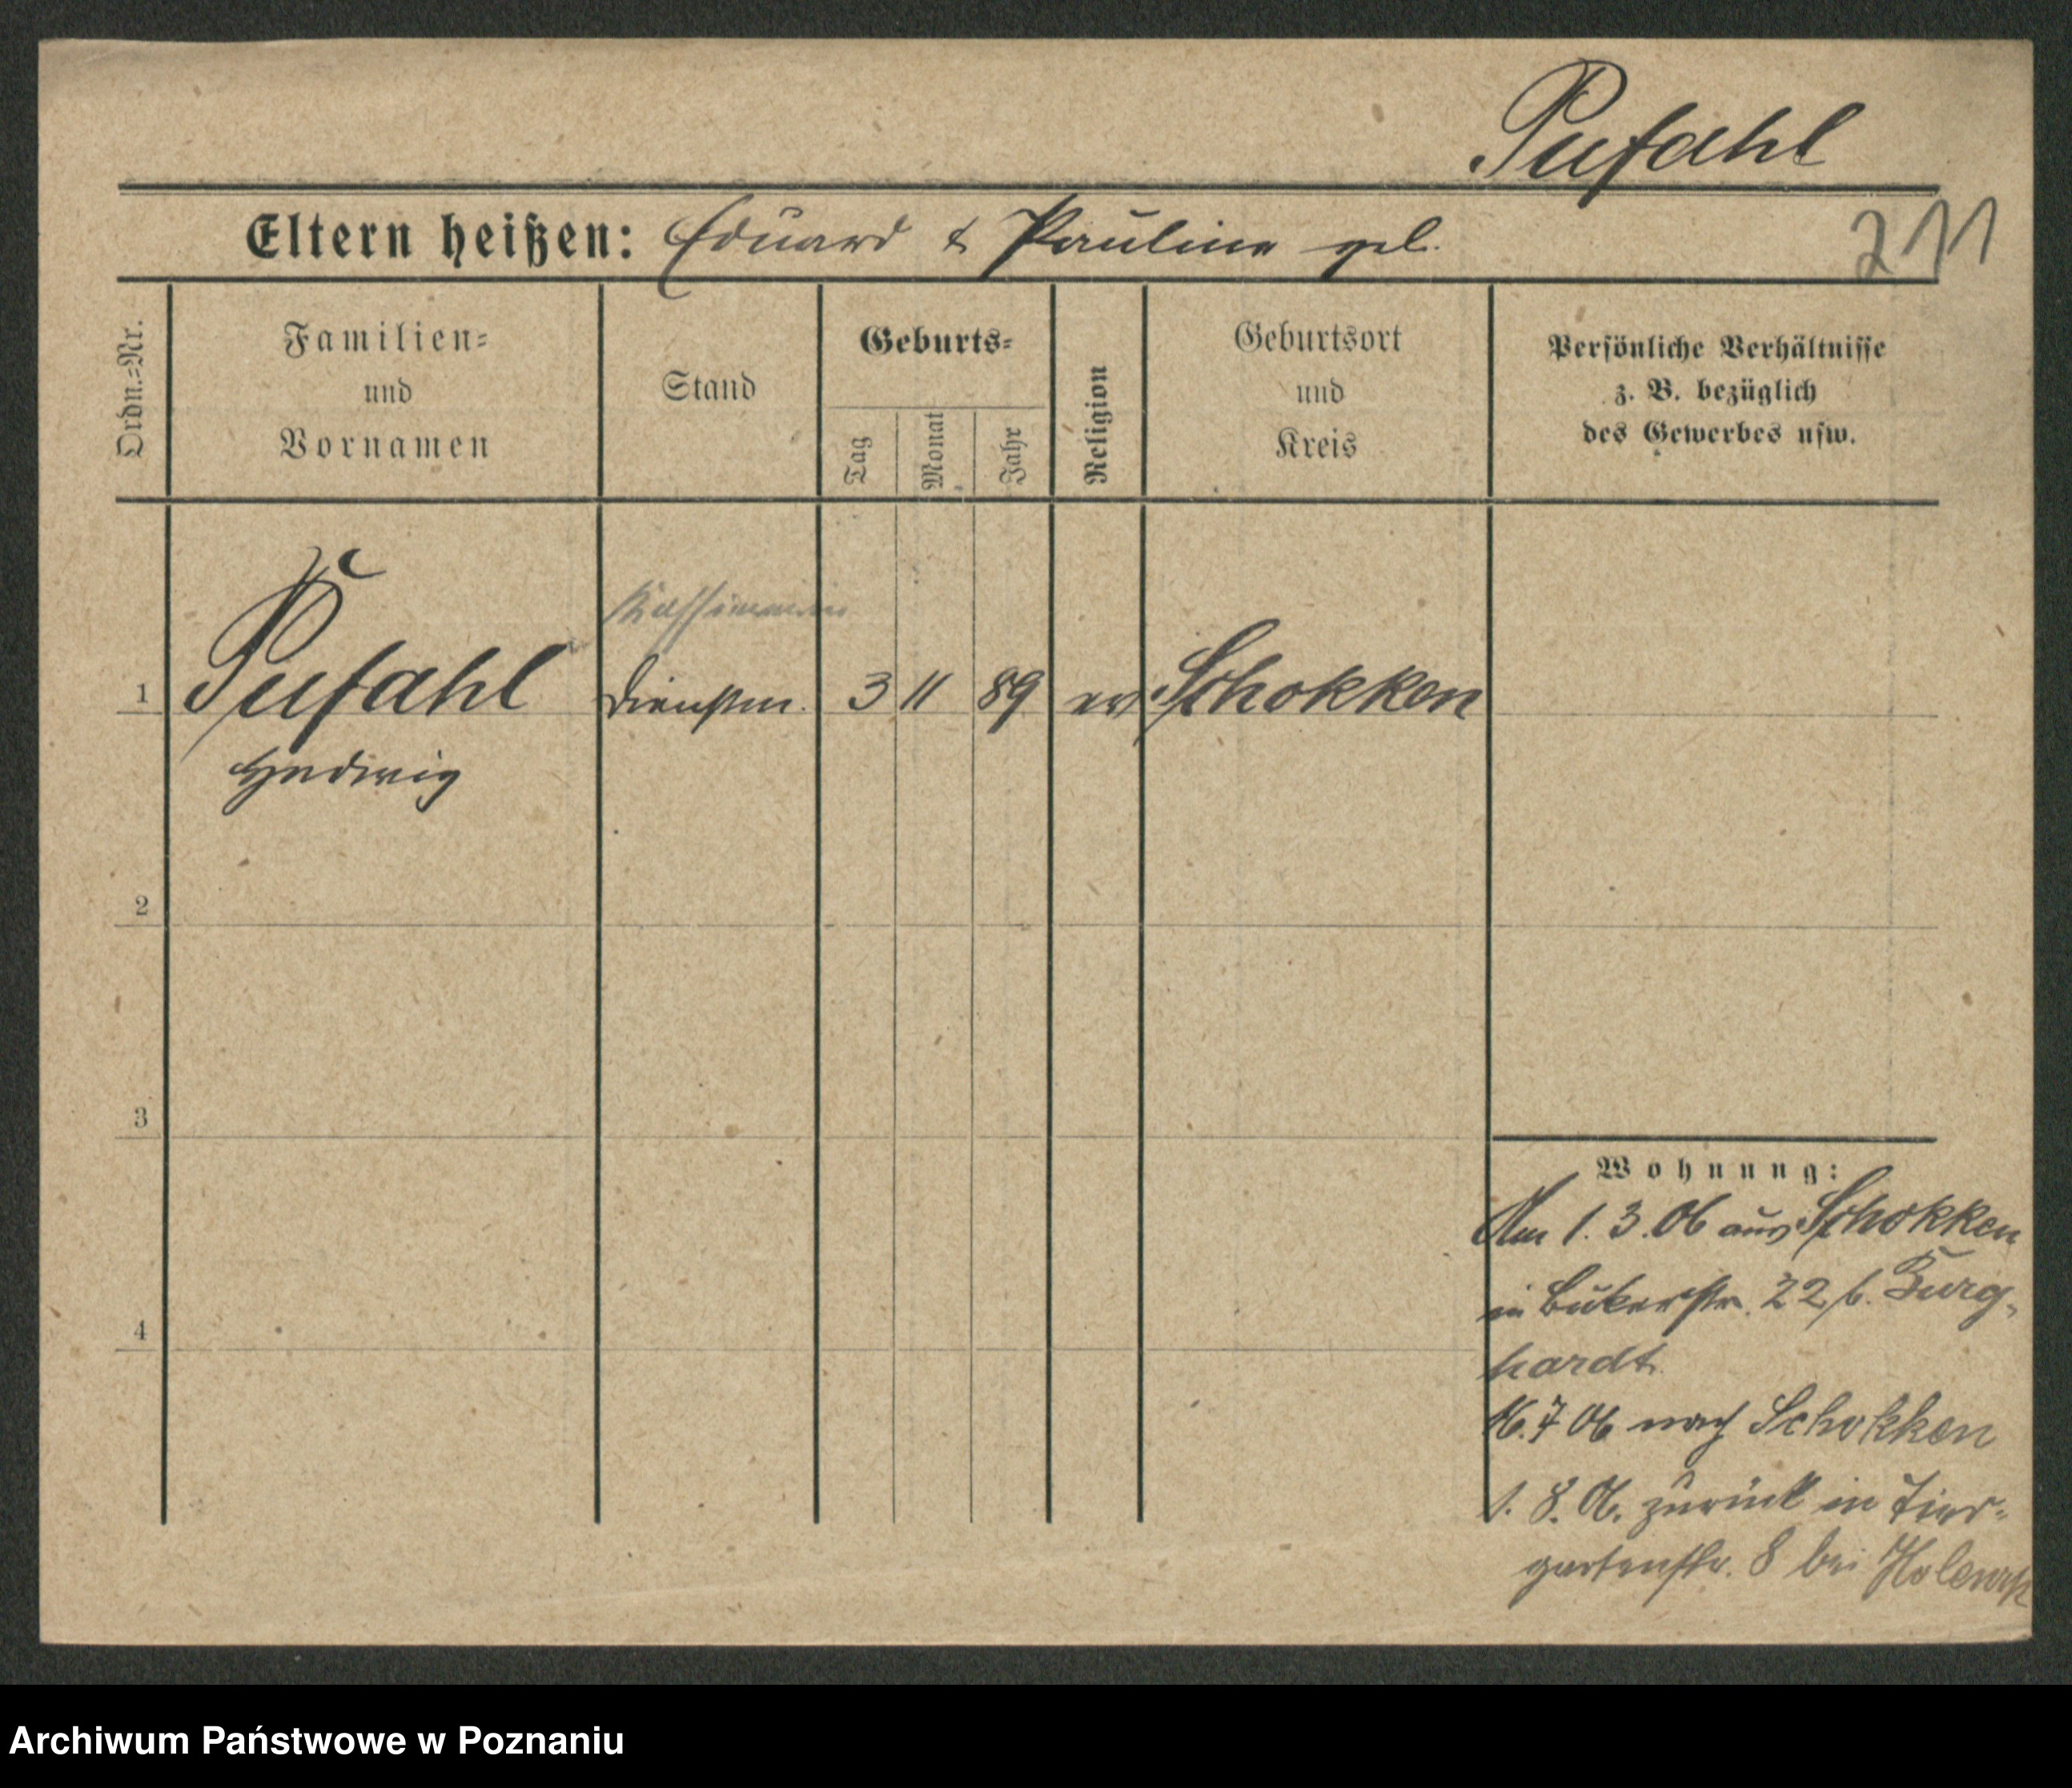 Pufahl
Eltern heißen: Eduard & Pauline
211
Ordn.=Nr.
Familien=
und
Vornamen
Stand
Geburts=
Tag
Monat
Jahr
Religion
Geburtsort
und
Kreis
Persönliche Verhältnisse
z. B. bezüglich
des Gewerbes usw.
1 Pufahl Dienstm. 3 11 89 ev Schokken
Hedwig
2
3
4
Wohnung:
Am 1. 3. 06 aus Schokken
in Bukerstr. 22 b. Burg-
hardt
16. 7 06 nach Schokken
1. 8. 06. zurück in Tier-
gartenstr. 8 bei
Archiwum Państwowe w Poznaniu